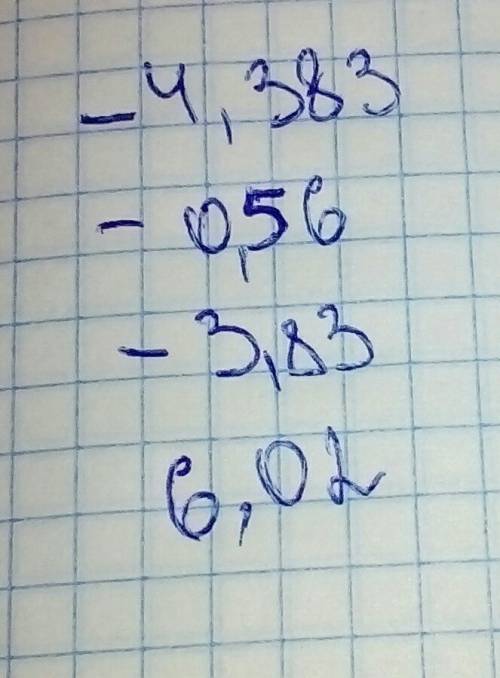 -4,383
- 0,56
- 3,83
6,02